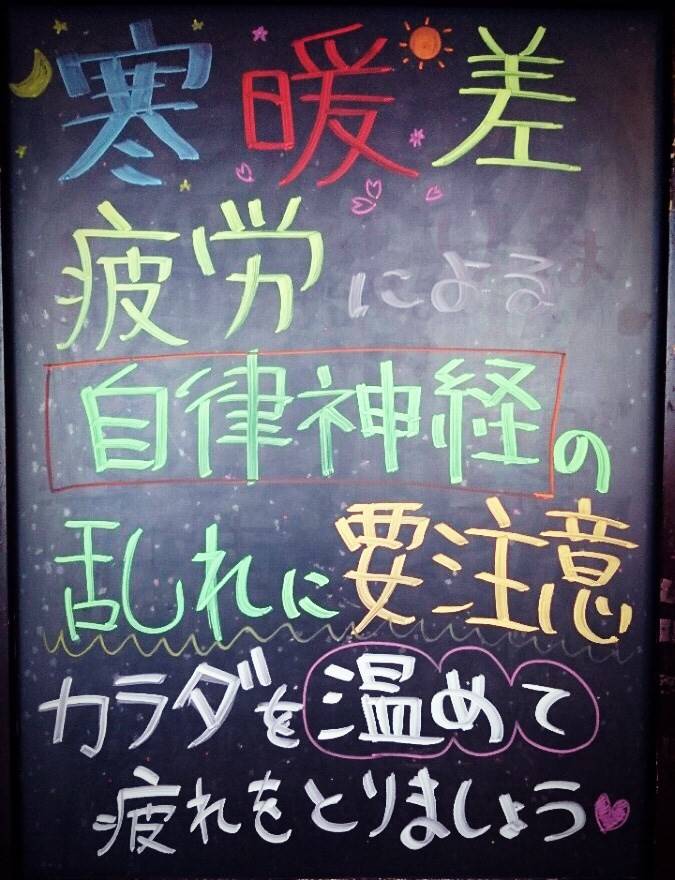 寒暖差
疲労による
自律神経の
乱れに要注意
カラダを温めて
疲れをとりましょう